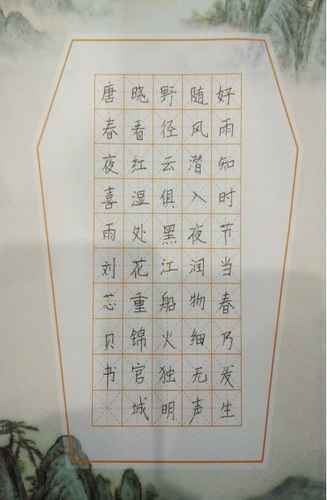 好雨知时节当春乃发生
随风潜入夜润物细无声
野径云俱黑江船火独明
晓看红湿处花重锦官城
唐春夜喜雨刘芯贝书